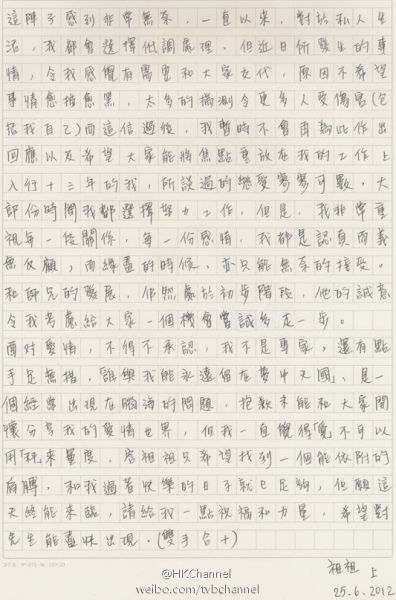 這陣子感到非常無奈,一直以來,對於私人生
活,我都會選擇低調處理。但近日所發生的事
情,令我感覺有需要和大家交代,原因不希望
事情愈描愈黑,太多的揣測令更多人受傷害(包
括我自己)而這信過後,我暫時不會再就此作出
回應以及希望大家能將焦點重放在我的工作上
入行十三年的我,所談過的戀愛寥寥可數,大
部份時間我都選擇努力工作,但是,我非常重
視每一段關係,每一份感情,我都是認真而義
無反顧,而緣盡的時候,亦只能無奈的接受。
和師兄的發展,仍然處於初步階段,他的誠意
令我考慮給大家一個機會嘗試多走一步。
面對愛情,不得不承認,我不是專家,還有點
手足無措,「誰與我能永遠留在夢中天國」,是一
個經常出現在腦海的問題,抱歉未能和大家開
懷分享我的愛情世界,但我一直覺得「愛」不可以
用「秤」來量度。容祖祖只希望找到一個能依附的
肩膊,和我過著快樂的日子就已足夠,但願這
天終能來臨,請給我一點祝福和力量,希望對
先生能盡快出現。(雙手合十)
祖祖 上
25.6.2012
@HKChannel
weibo.com/tvbchannel